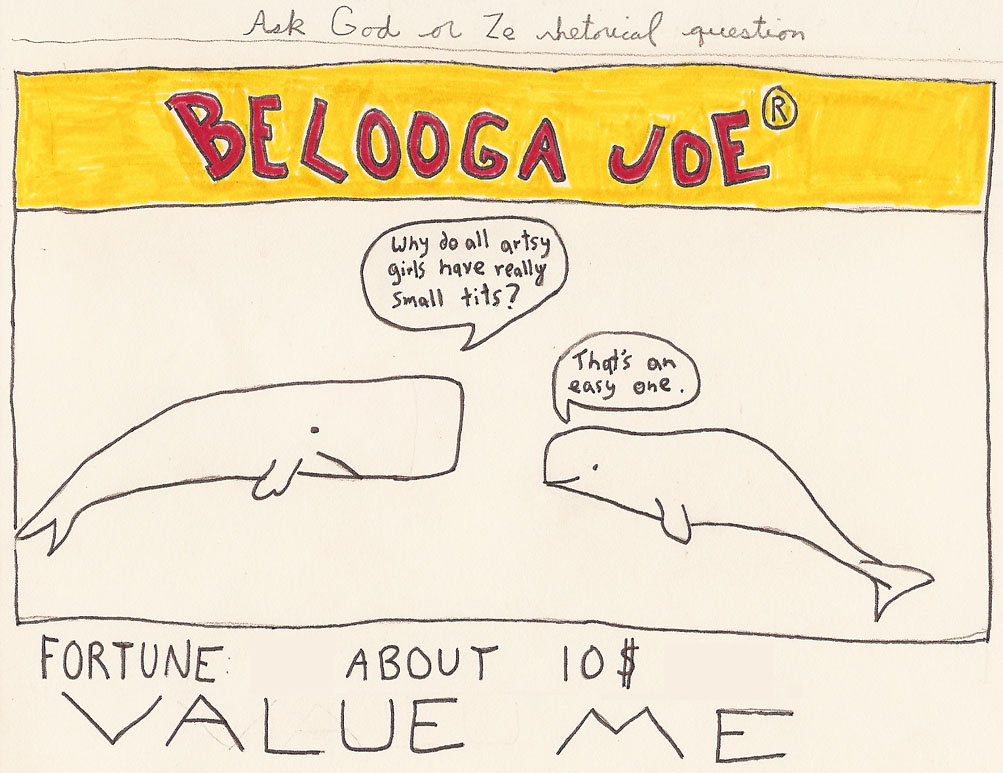 Ask God or Ze rhetorical question
BELOOGA JOE®
Why do all artsy
girls have really
small tits?
That's an
easy one.
FORTUNE: ABOUT 10$
VALUE ME